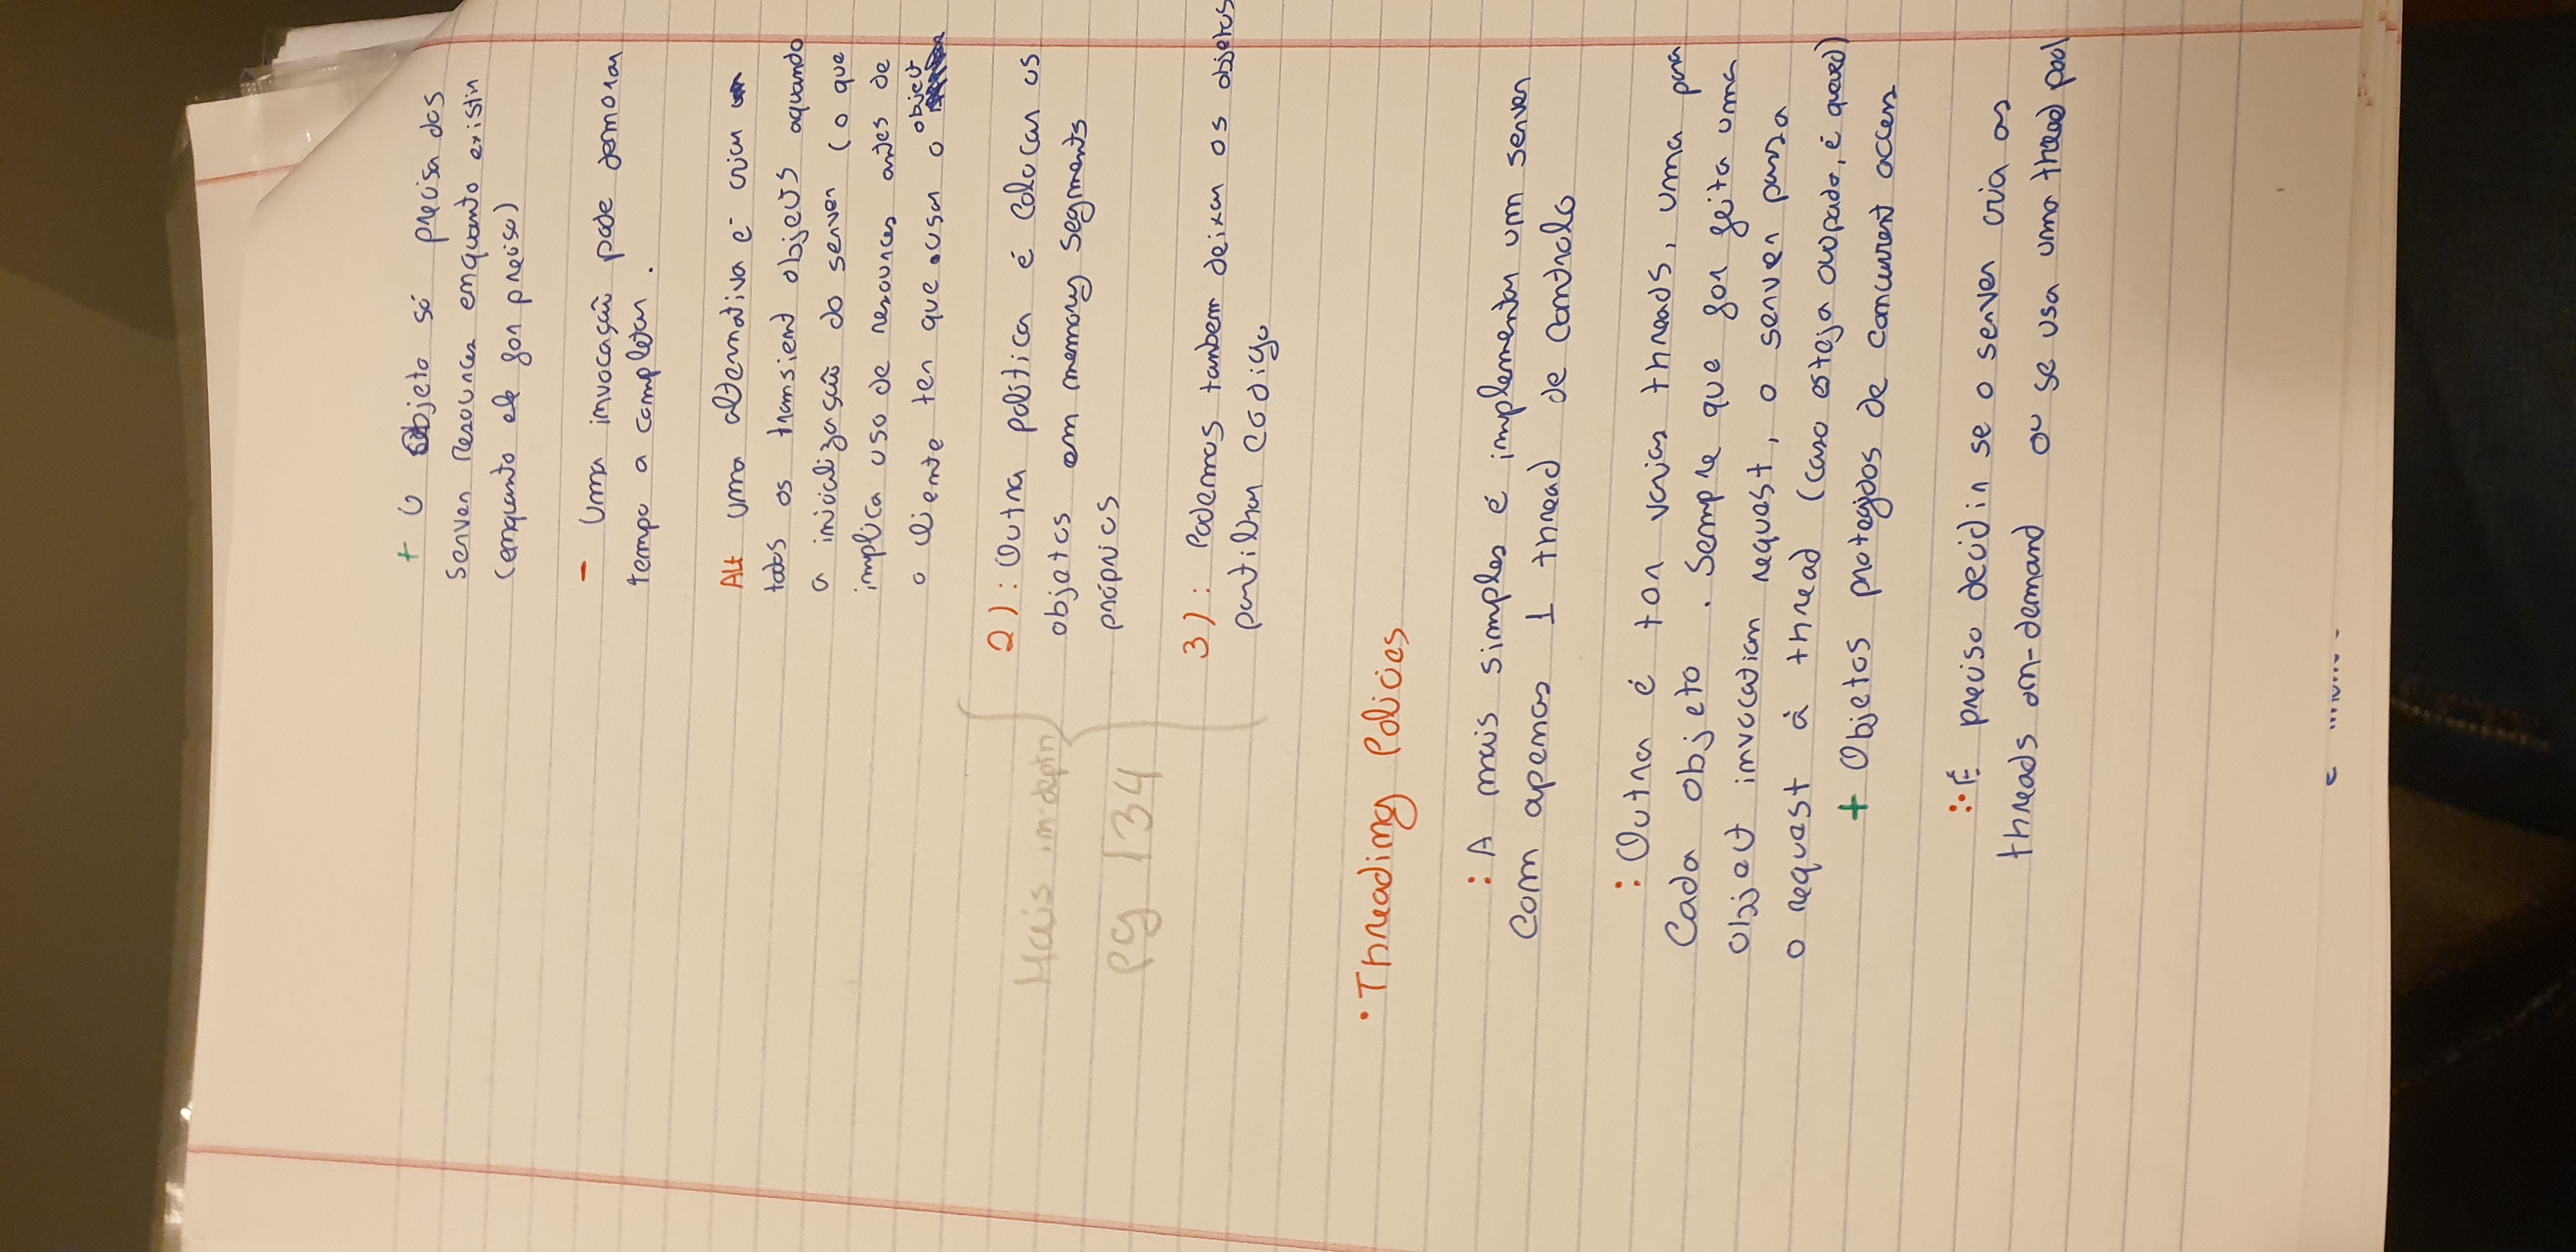 + O Objeto só precisa dos
server resources enquanto existir
(enquanto ele for preciso)
- Uma invocação pode demorar
tempo a completar.
Alt uma alternativa é criar
todos os transient objects aquando
a inicialização do server (o que
implica uso de resources antes de
o cliente ter que usar o object
Mais in-depth
pg 134
2): Outra política é colocar os
objetos em memory segments
próprios
3): Podemos tambem deixar os objetos
partilhar código
• Threading Policies
: A mais simples é implementar um server
com apenas 1 thread de controlo
: Outra é ter varias threads, uma para
cada objeto. Sempre que for feita uma
object invocation request, o server passa
o request à thread (caso esteja ocupada, é queued)
+ Objetos protegidos de concurrent access
:• É preciso decidir se o server cria as
threads on-demand ou se usa uma thread pool